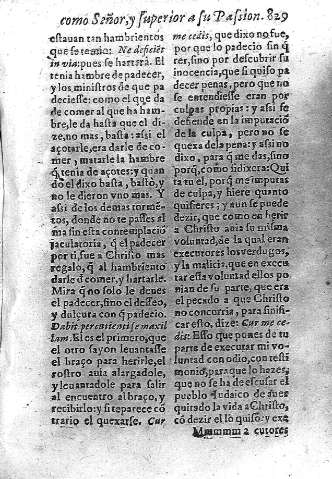 como Señor, y superior a su Passion. 829
estauan tan hambrientos
que se temio: Ne deficiēt
in via: pues se hartarà. El
tenia hambre de padecer,
y los ministros de que pa
deciesse: como el que da
de comer al que ha ham-
bre, le da hasta que el di-
ze, no mas, basta: assi el
açotarle, era darle de co-
mer, matarle la hambre
q̃ tenia de açotes: y quan
do el dixo basta, bastò, y
no le dieron vno mas. Y
assi de los demas tormē-
tos, donde no te passes al
ma sin esta contemplació
jaculatoria, q̃ el padecer
por ti, fue a Christo mas
regalo, q̃ al hambriento
darle d̃ comer, y hartarle.
Mira q̃ no solo le deues
el padecer, sino el desseo,
y dulçura con q̃ padecio.
Dabit percutienti se maxil
lam. El es el primero, que
el otro sayon leuantasse
el braço para herirle, el
rostro auia alargadole,
y leuantadole para salir
al encuentro al braço, y
recibirlo: y si te parece cõ
trario el quexarse. Cur
me cædis, que dixo no fue,
por que lo padecio sin q̃
rer, sino por descubrir su
inocencia, que si quiso pa
decer penas, pero que no
se entendiesse eran por
culpas propias: y assi se
defiende en la imputació
de la culpa, pero no se
quexa de la pena: y assi no
dixo, para q̃ me das, sino
porq̃, como si dixera: Qui
ta tu el, por q̃ me imputas
de culpa, y hiere quanto
quisieres; y aun se puede
dezir, que como en herir
a Christo auia su misma
voluntad, de la qual eran
executores los verdugos,
y la malicia, que en execu
tar esta voluntad ellos po
nian de su parte, que era
el pecado a que Christo
no concurria, para signifi
car esto, dize: Cur me cæ-
dis: Esso que pones de tu
parte de executar mi vo-
luntad con odio, con testi
monio, para que lo hazes,
que no se ha de escusar el
pueblo Iudaico de auer
quitado la vida a Christo,
có dezir el lo quiso, y exe
Mmmmm 2 cutores